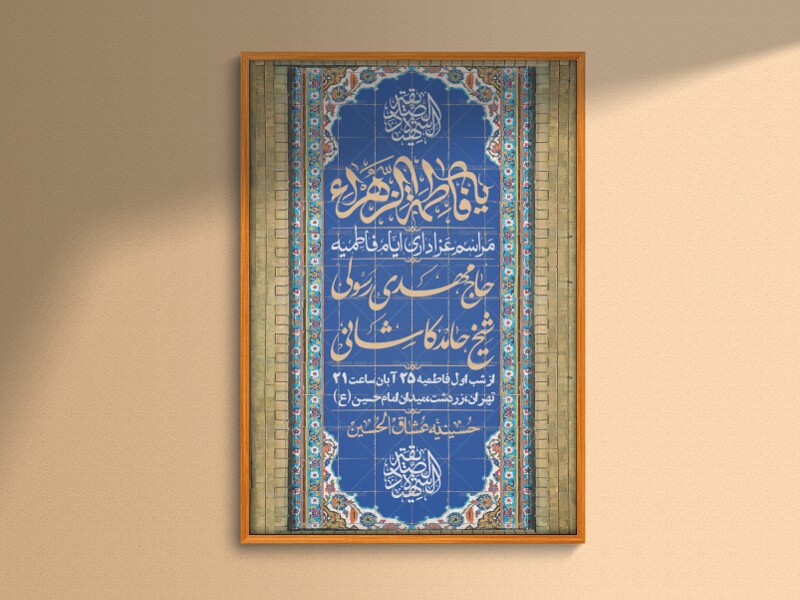 الصدیقة الشهیدة
یا فاطمة الزهراء
مراسم عزاداری ایام فاطمیه
حاج مهدی رسولی
شیخ حامد کاشانی
از شب اول فاطمیه ۲۵ آبان ساعت ۲۱
تهران،زردشت،میدان امام حسین (ع)
حسینیه عشاق الحسین
الصدیقة الشهیدة